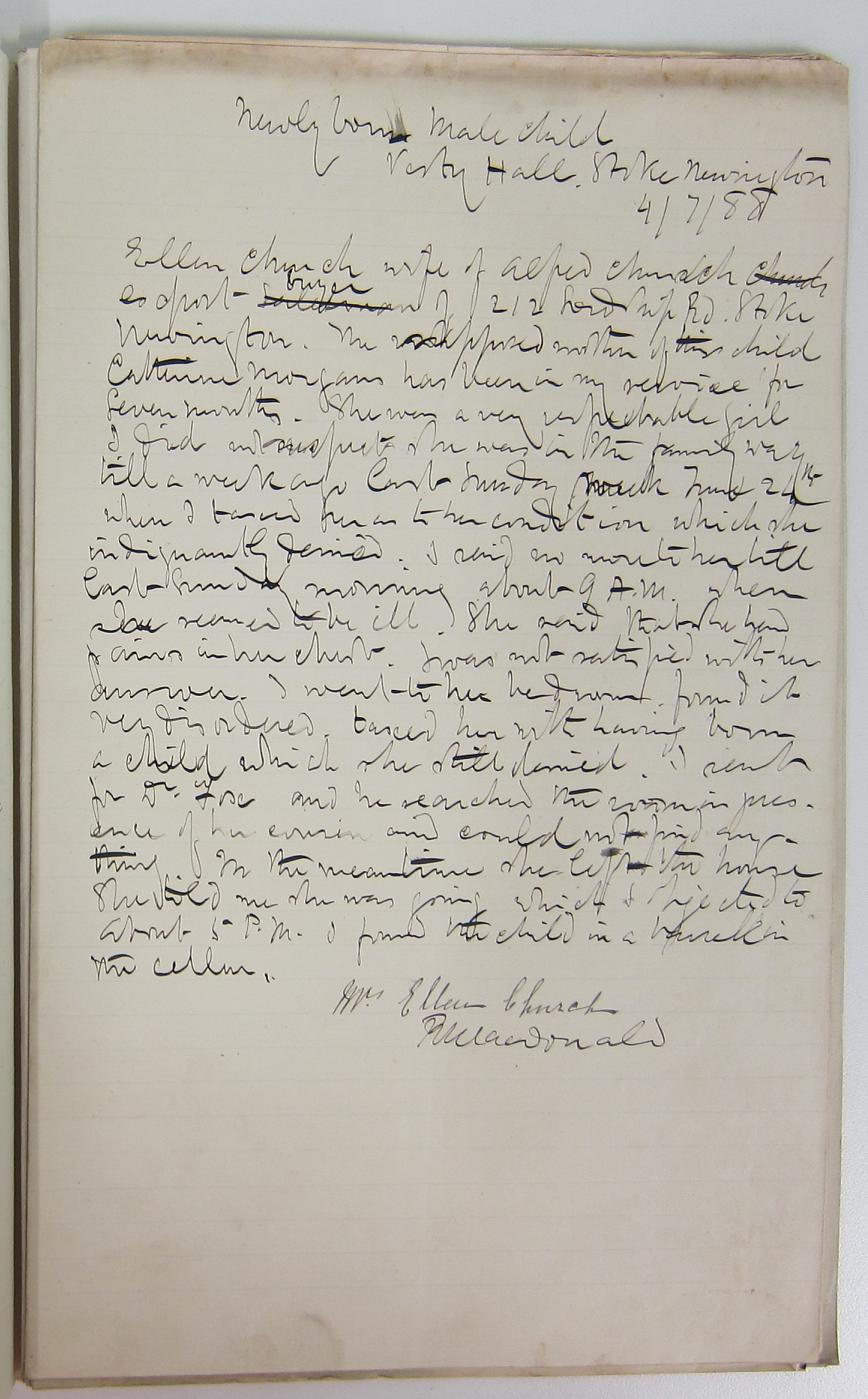 Newly born Male child
Vestry Hall. Stoke Newington
4/7/88
Ellen Church wife of Alfred Church
export buyer of 212 Lordship Rd. Stoke
Newington. The supposed mother of this child
Catherine Morgans has been in my service for
seven months. She was a very respectable girl
I did not suspect she was in the family way
till a week ago last Sunday June 24th
when I taxed her as to her condition which she
indignantly denied. I said no more to her till
last Sunday morning about 9 A.M. when
she seemed to be ill. She said that she had
pains in her chest. I was not satisfied with her
answer. I went to her bedroom. found it
very disordered. taxed her with having born
a child which she still denied. I sent
for Dr. Fox and he searched the room in pres-
ence of her cousin and could not find any-
thing In the meantime she left the house
She told me she was going which I objected to
About 5 P.M. I found the child in a in
the cellar.
Mrs Ellen Church
Macdonald